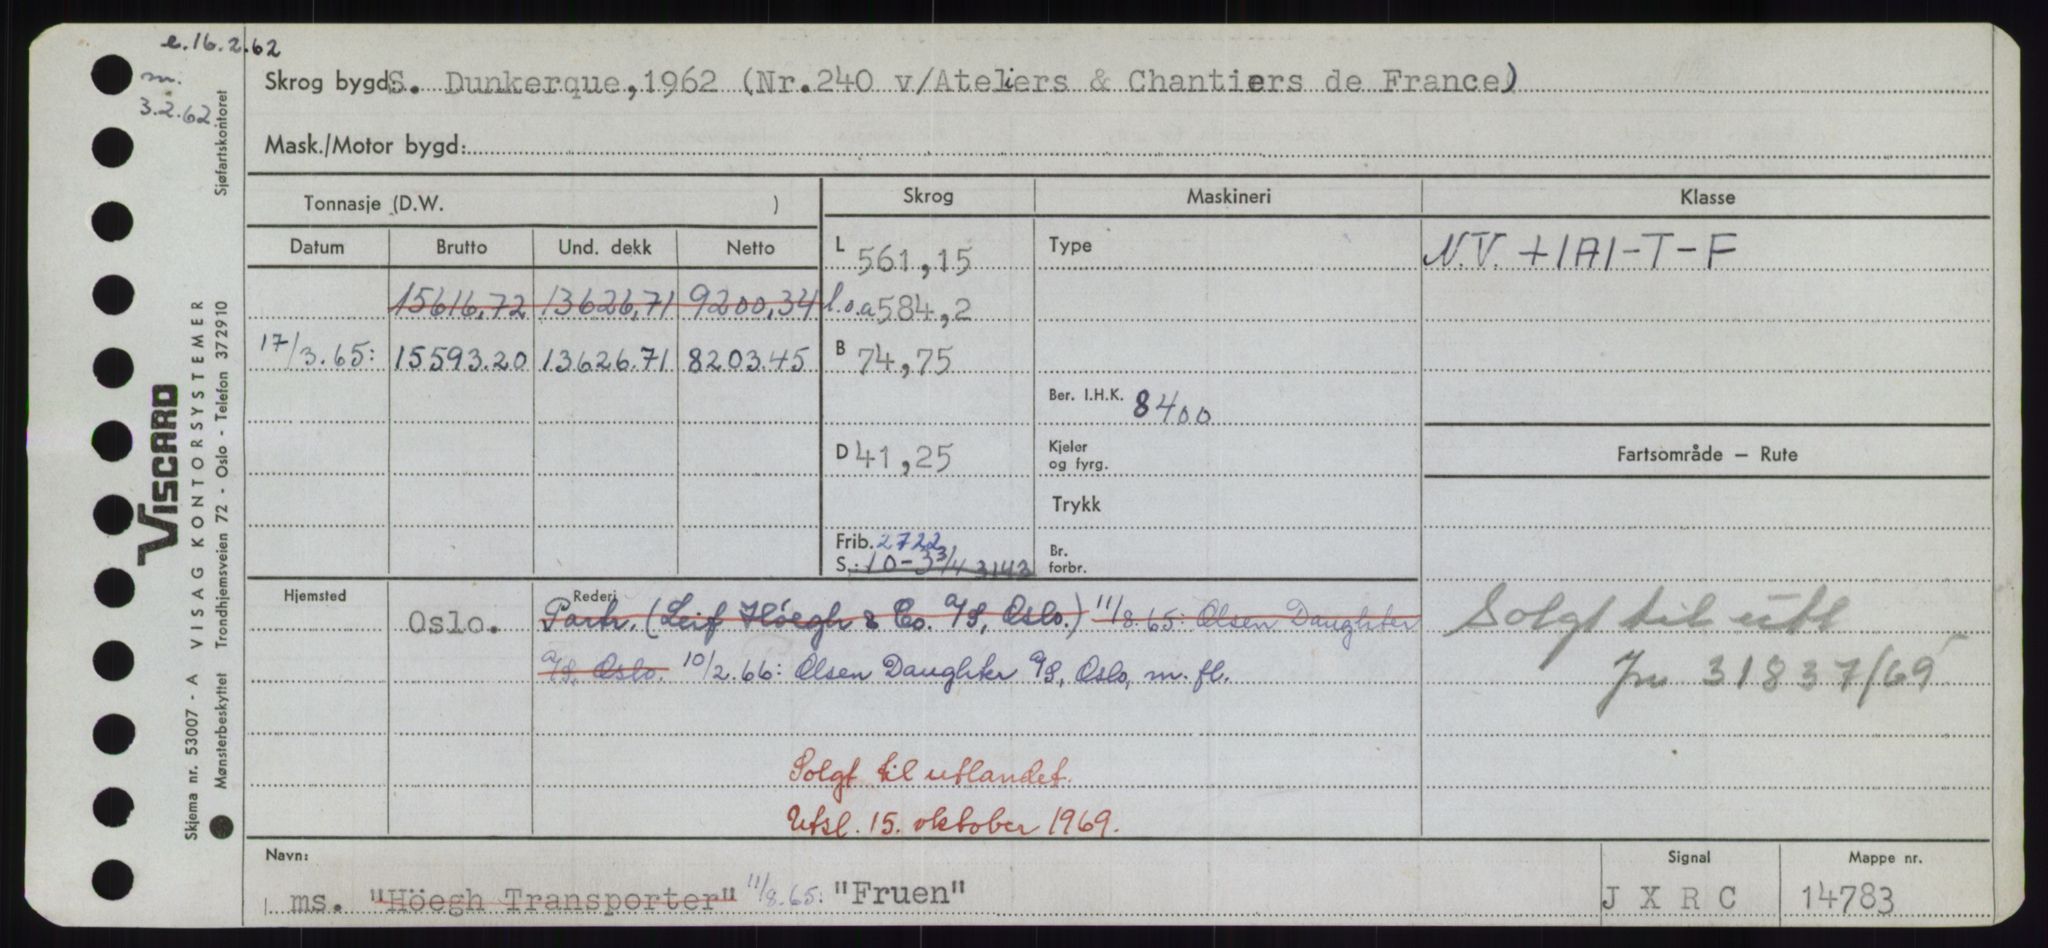 e. 16.2.62
m.
3.2.62.
Skrog bygd: S. Dunkerque, 1962 (Nr. 240 v/Ateliers & Chantiers de France)
Mask./Motor bygd:
Tonnasje (D.W. )
Skrog
Maskineri
Klasse
Datum
Brutto
Und. dekk
Netto
L 561,15
Type
N.V. +1A1-T-F
15616,72 13626,71 9200,34
l.o.a 584,2
17/3.65: 15593.20 13626.71 8203.45
B 74,75
Ber. I.H.K. 8400
D 41,25
Kjeler
og fyrg.
Fartsområde – Rute
Trykk
Frib. 2722
S.: 10-3 3/4 3143
Br.
forbr.
Hjemsted
Oslo.
Rederi
Partr. (Leif Höegh & Co. A/S, Oslo.) 11/8.65: Olsen Daughter
A/S, Oslo. 10/2.66: Olsen Daughter A/S, Oslo, m. fl.
Solgt til utl
Jnr 31837/69
Solgt til utlandet.
Utsl. 15. oktober 1969.
Navn:
ms. "Höegh Transporter" 11/8.65: "Fruen"
Signal
J X R C
Mappe nr.
14783
Viscard
VISAG KONTORSYSTEMER
Sjøfartskontoret
Skjema nr. 53007 - A
Mønsterbeskyttet Trondhjemsveien 72 - Oslo - Telefon 372910